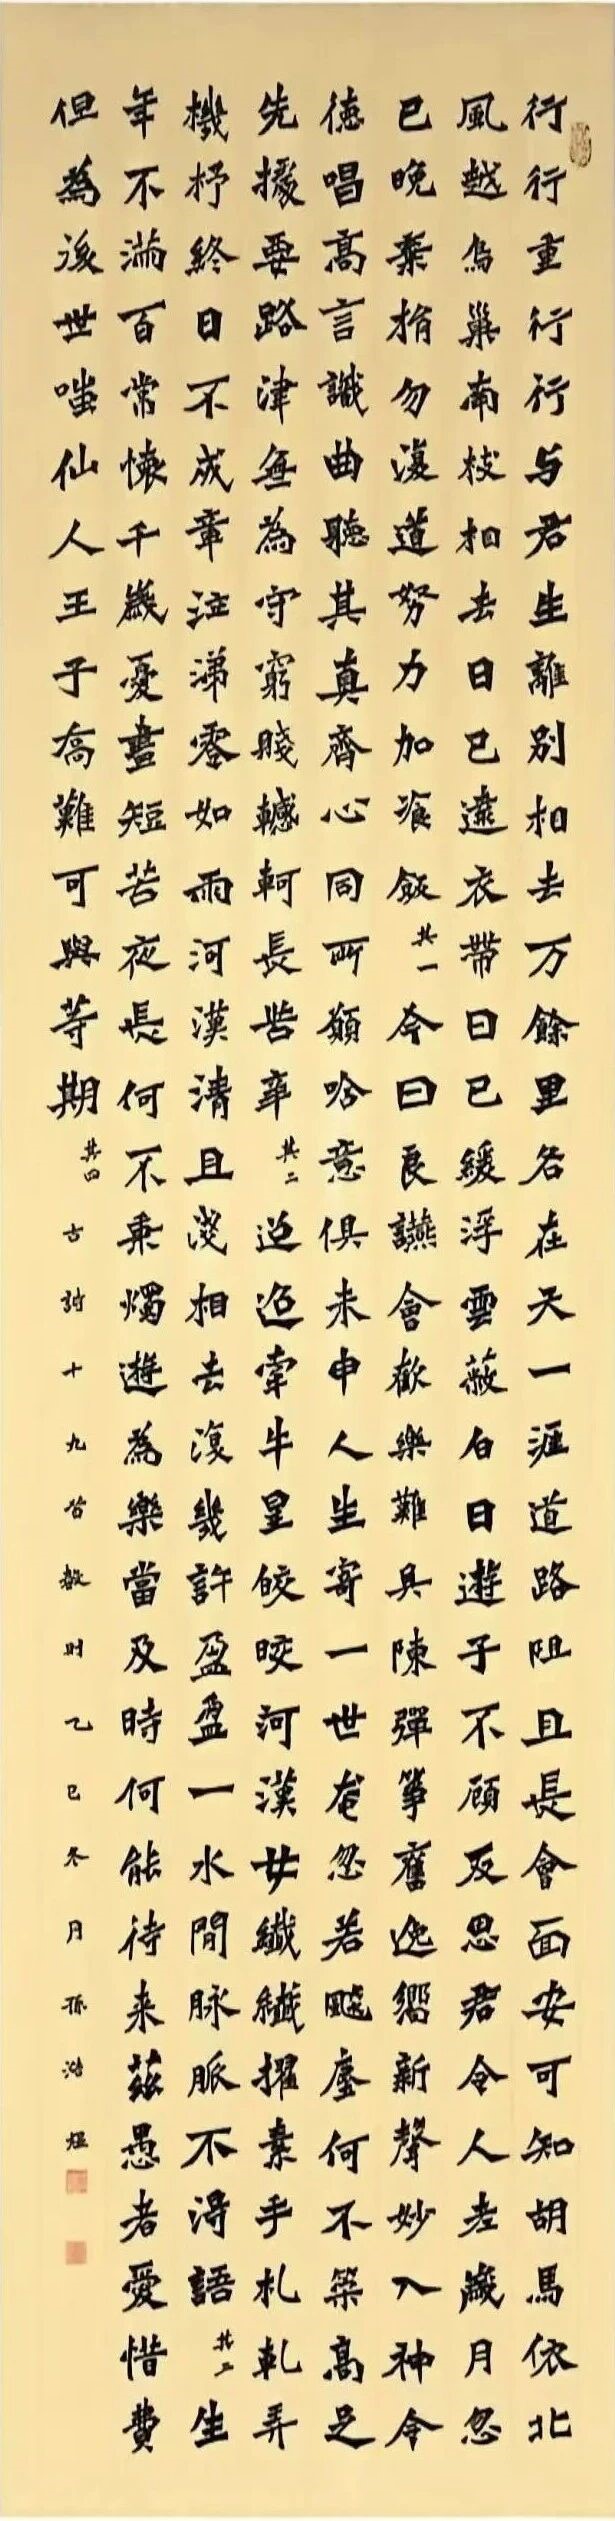 行行重行行与君生離別相去万餘里各在天一涯道路阻且長會面安可知胡馬依北
風越鳥巢南枝相去日已遠衣帶日已緩浮雲蔽白日遊子不顧反思君令人老歲月忽
已晚棄捐勿復道努力加飡飯其一今日良讌會歡樂難具陳彈筝奮逸嚮新聲妙入神令
德唱高言識曲聽其真齊心同所願含意俱未申人生寄一世奄忽若飈塵何不策高足
先據要路津無為守窮賤轗軻長苦辛其二迢迢牽牛星皎皎河漢女纖纖擢素手札軋弄
機杼終日不成章泣涕零如雨河漢清且淺相去復幾許盈盈一水間脉脈不得語其三生
年不滿百常懷千歲憂晝短苦夜長何不秉燭遊為樂當及時何能待来茲愚者愛惜費
但為後世嗤仙人王子喬難可與等期其四古詩十九首數則乙巳冬月孫